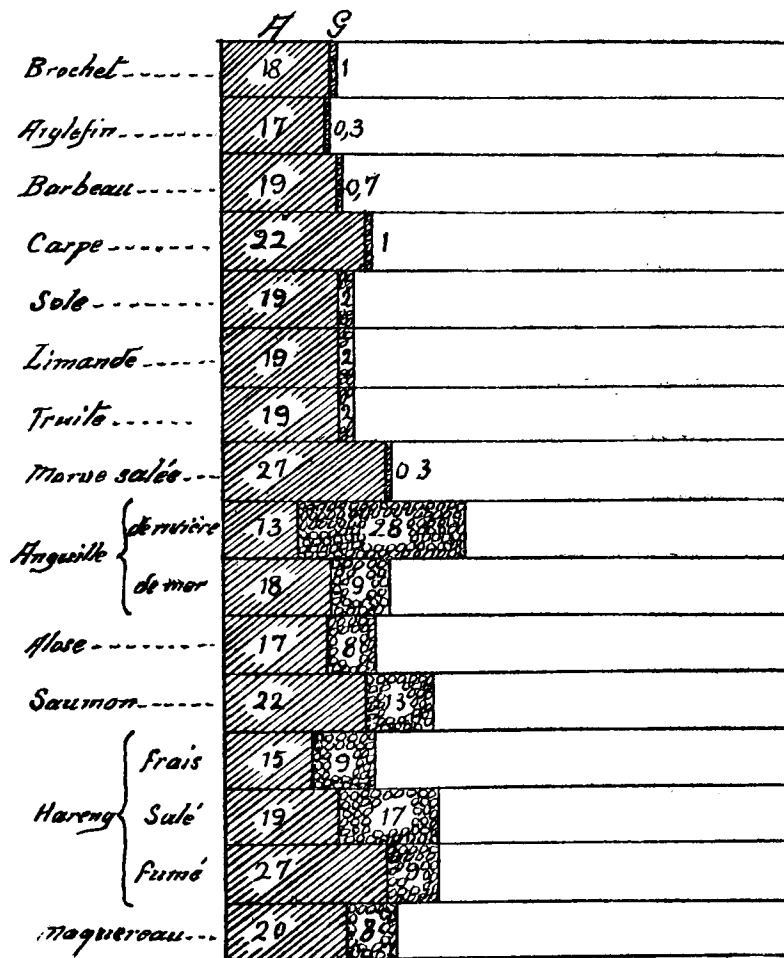 A G
Brochet 18 1
Aiglefin 17 0,3
Barbeau 19 0,7
Carpe 22 1
Sole 19 2
Limande 19 2
Truite 19 2
Morue salée 27 0 3
Anguille
de rivière 13 28
de mer 18 9
Alose 17 8
Saumon 22 13
Hareng
frais 15 9
Salé 19 17
fumé 27 9
maquereau 20 8